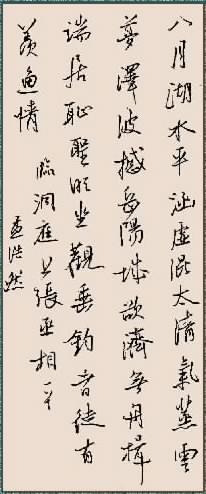 八月湖水平涵虛混太清氣蒸雲
夢澤波撼岳陽城欲濟無舟楫
端居恥聖明坐觀垂釣者徒有
羨魚情
臨洞庭上張丞相一
孟浩然